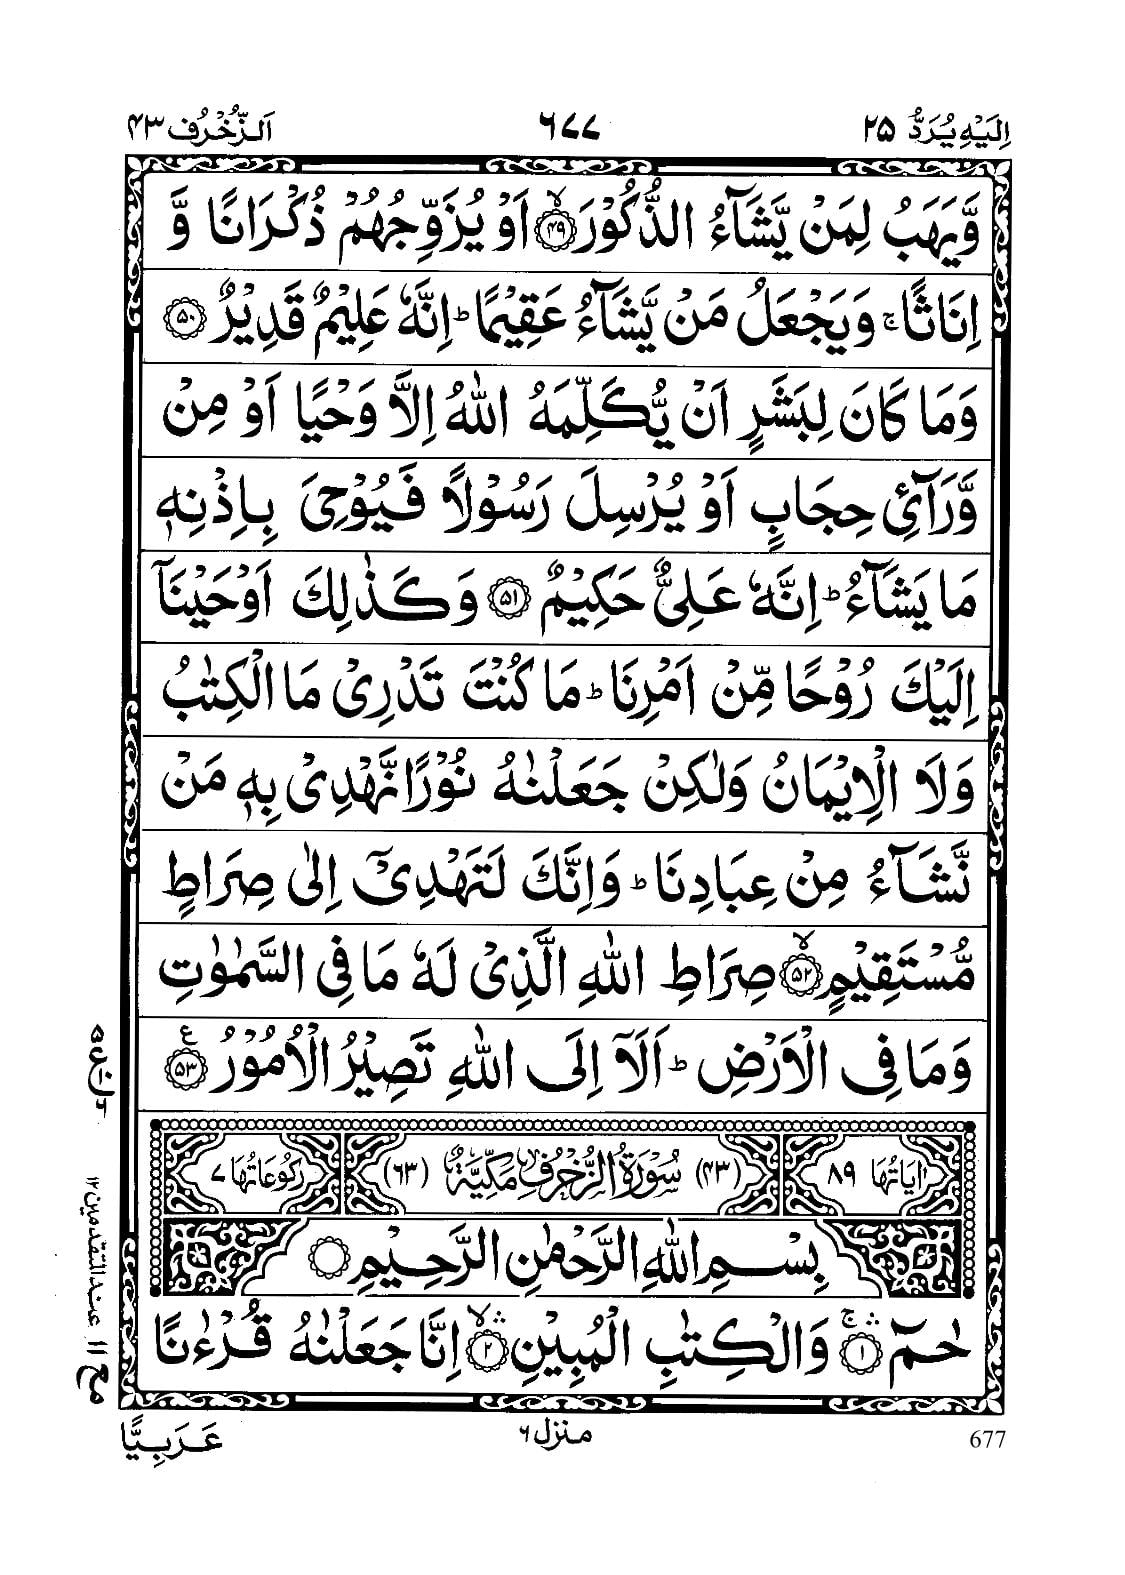 اِلَيْهِ يُرَدُّ ۲۵
۶۷۷
اَلزُّخْرُف ۴۳
وَّيَهَبُ لِمَنْ يَّشَآءُ الذُّكُوْرَۙ‏﴿۴۹﴾ اَوْ يُزَوِّجُهُمْ ذُكْرَانًا وَّ
اِنَاثًاۚ وَيَجْعَلُ مَنْ يَّشَآءُ عَقِيْمًاؕ اِنَّهٗ عَلِيْمٌ قَدِيْرٌ ﴿۵۰﴾
وَمَا كَانَ لِبَشَرٍ اَنْ يُّكَلِّمَهُ اللّٰهُ اِلَّا وَحْيًا اَوْ مِنْ
وَّرَآئِ حِجَابٍ اَوْ يُرْسِلَ رَسُوْلًا فَيُوْحِىَ بِاِذْنِهٖ
مَا يَشَآءُؕ اِنَّهٗ عَلِىٌّ حَكِيْمٌ ﴿۵۱﴾ وَكَذٰلِكَ اَوْحَيْنَاۤ
اِلَيْكَ رُوْحًا مِّنْ اَمْرِنَاؕ مَا كُنْتَ تَدْرِىْ مَا الْكِتٰبُ
وَلَا الْاِيْمَانُ وَلٰكِنْ جَعَلْنٰهُ نُوْرًا نَّهْدِىْ بِهٖ مَنْ
نَّشَآءُ مِنْ عِبَادِنَاؕ وَاِنَّكَ لَتَهْدِىْۤ اِلٰى صِرَاطٍ
مُّسْتَقِيْمٍۙ ﴿۵۲﴾ صِرَاطِ اللّٰهِ الَّذِىْ لَهٗ مَا فِى السَّمٰوٰتِ
وَمَا فِى الْاَرْضِؕ اَلَاۤ اِلَى اللّٰهِ تَصِيْرُ الْاُمُوْرُ ﴿۵۳﴾ ع
۵ ع ۱۰ ۶
اٰيَاتُهَا ۸۹ (۴۳) سُوْرَةُ الزُّخْرُفِ مَكِّيَّةٌ (۶۳) رُكُوْعَاتُهَا ۷
بِسْمِ اللّٰهِ الرَّحْمٰنِ الرَّحِيْمِ
حٰمٓ ۛۚ ﴿۱﴾ وَالْكِتٰبِ الْمُبِيْنِ ۛۙ ﴿۲﴾ اِنَّا جَعَلْنٰهُ قُرْءٰنًا
مع ۱۱ عند المتقدمين ۱۲
عَرَبِيًّا
منزل ۶
677